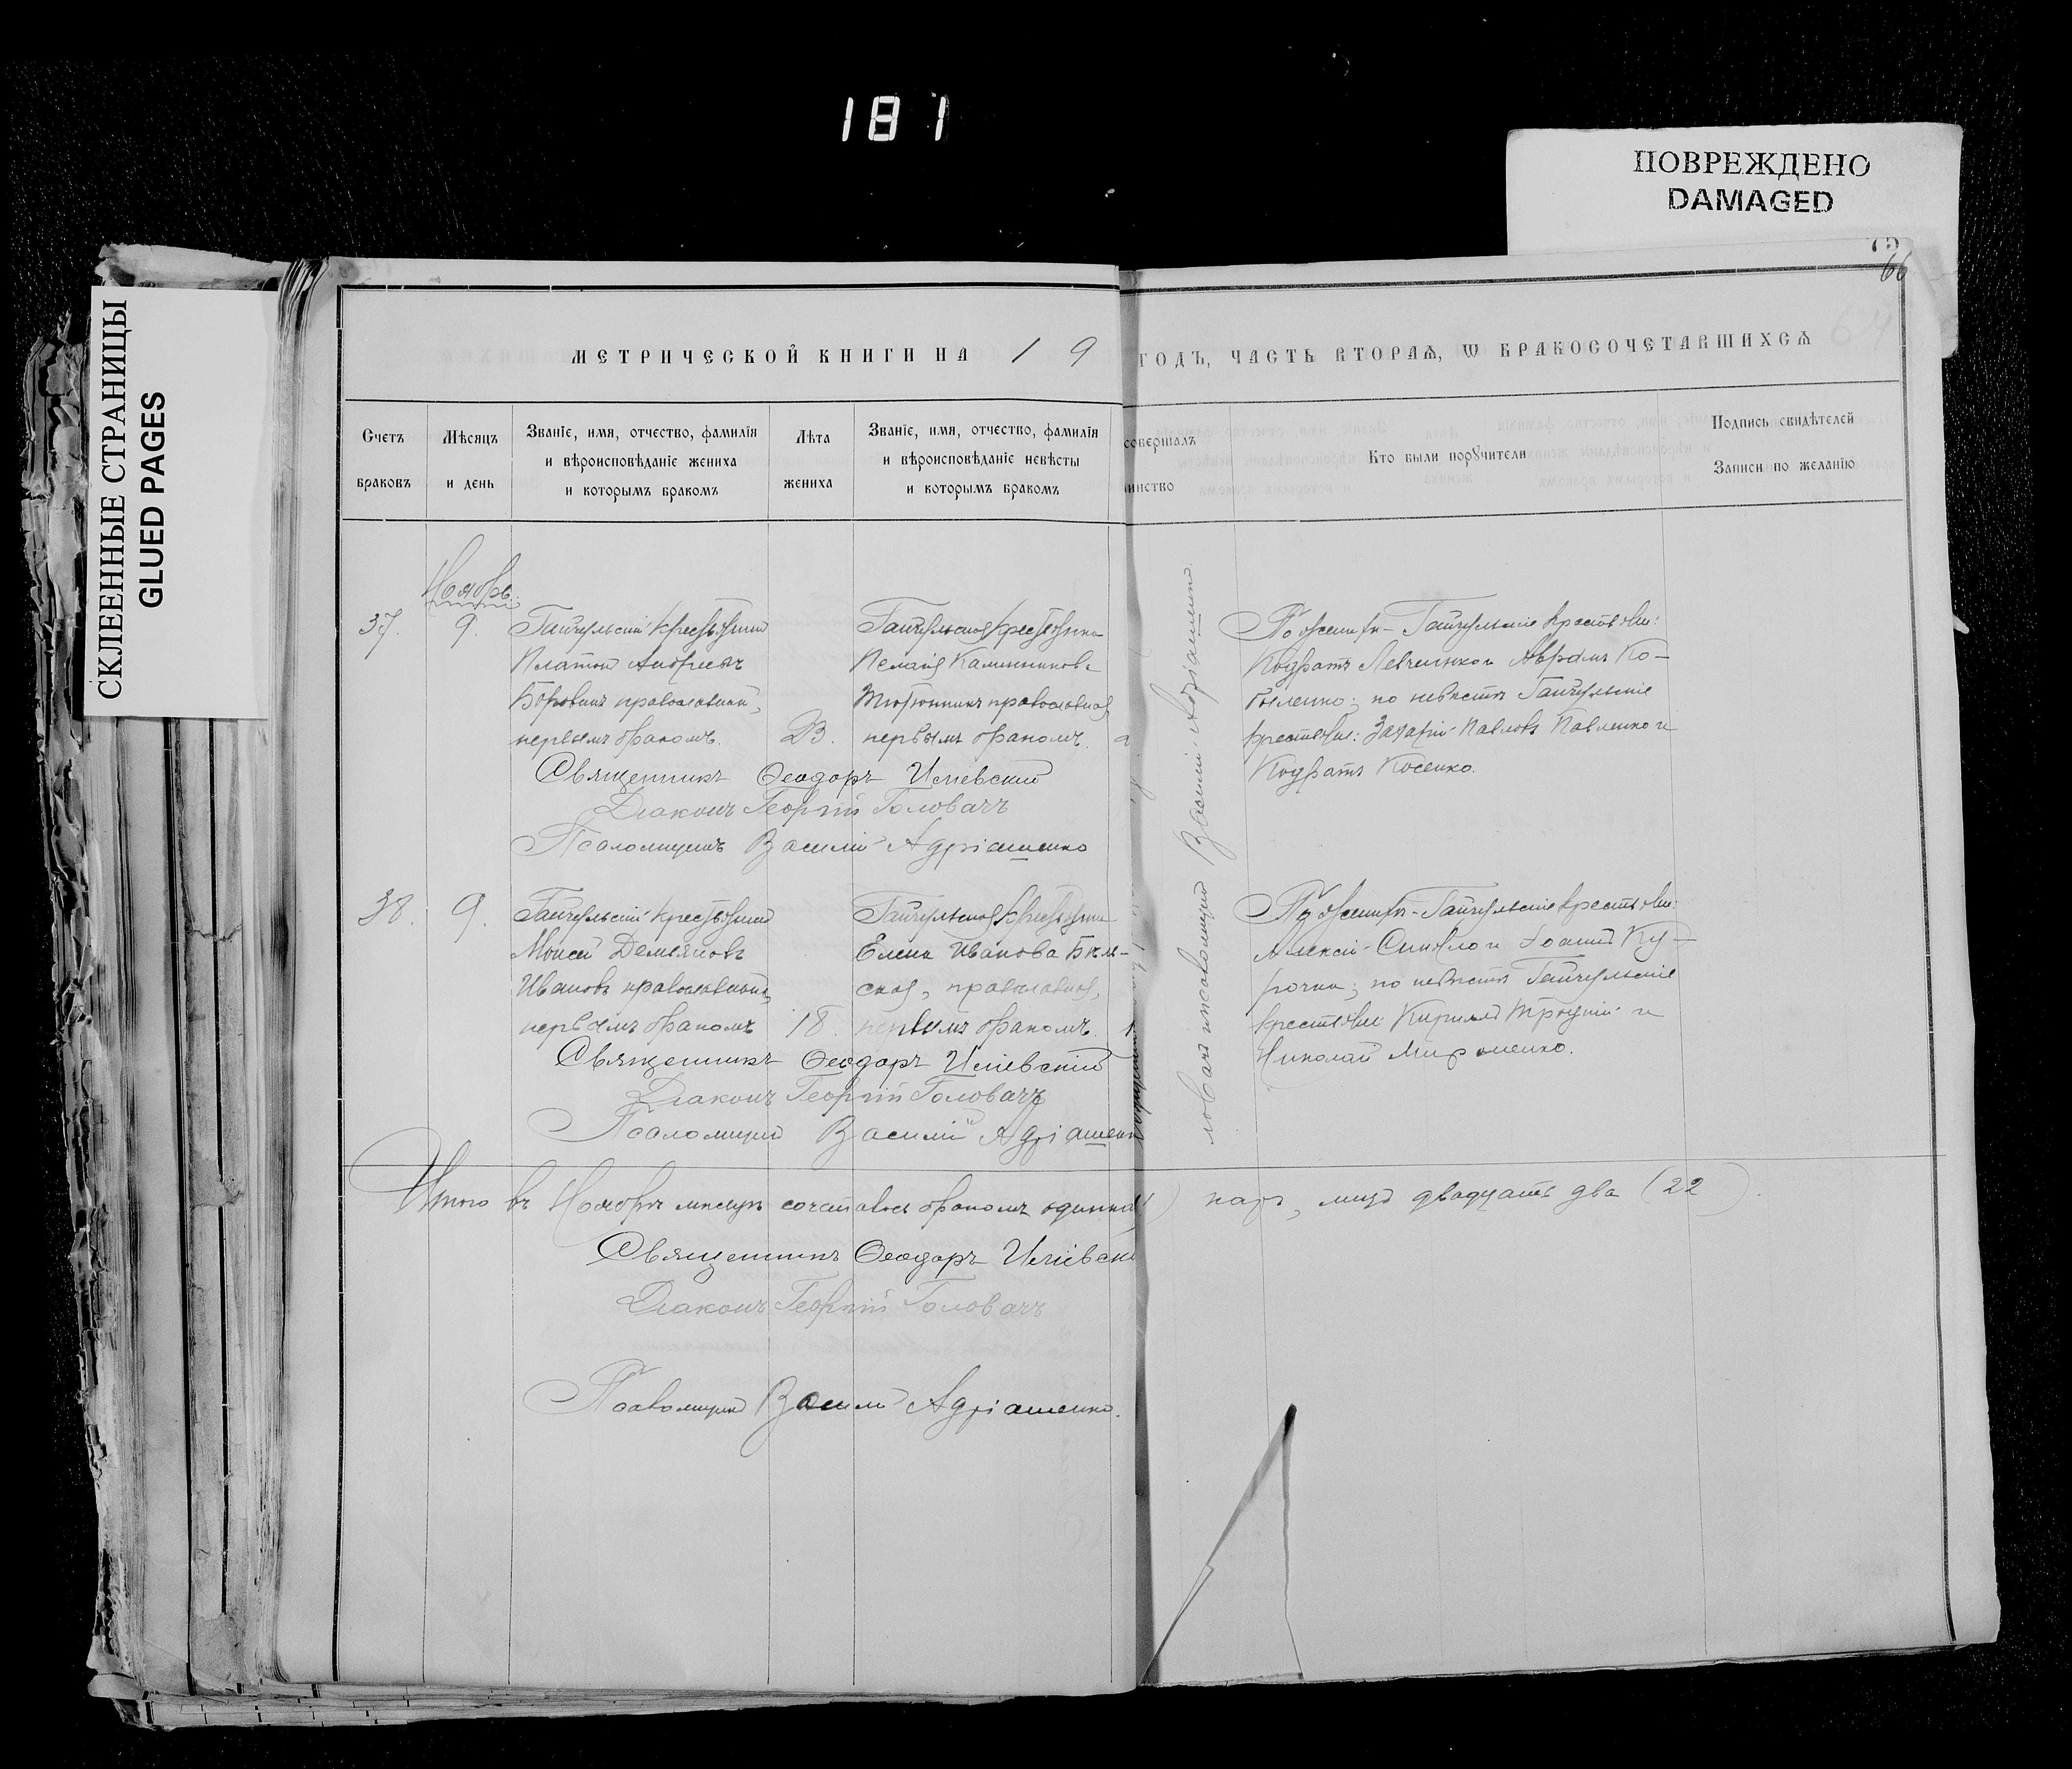 181
ПОВРЕЖДЕНО
DAMAGED
СКЛЕЕННЫЕ СТРАНИЦЫ
GLUED PAGES
75
66
МЕТРИЧЕСКОЙ КНИГИ НА 19 ГОДЪ, ЧАСТЬ ВТОРАЯ, Ѡ БРАКОСОЧЕТАВШИХСЯ
Счетъ браковъ
Мѣсяцъ и день
Званіе, имя, отчество, фамилія
и вѣроисповѣданіе жениха
и которымъ бракомъ
Лѣта жениха
Званіе, имя, отчество, фамилія
и вѣроисповѣданіе невѣсты
и которымъ бракомъ
совершалъ
инство
Кто были порꙋчители
Подпись свидѣтелей
Записи по желанію
Ноябрь
37.
9.
Гайчульскій крестьянинъ
Платон Андреевъ
православный,
первымъ бракомъ.
23.
Гайчульская крестьянка
Пелагія
Тютюнникъ православная
первымъ бракомъ.
Священникъ Ѳеодоръ
Діаконъ Георгій Головачъ
Псаломщикъ Василій Адріашенко
По женихѣ - Гайчульскіе крестьяне:
Кондратъ Левченко и Аврамъ Ко-
быленко; по невѣстѣ Гайчульскіе
крестьяне: Захарій Павловъ Павленко и
Кондратъ Косенко.
38.
9.
Гайчульскій крестьянинъ
Моисей Демьяновъ
Ивановъ православный,
первымъ бракомъ
18
Гайчульская крестьянка
Елена Иванова Бѣль-
ская, православная,
первымъ бракомъ.
Священникъ Ѳеодоръ
Діаконъ Георгій Головачъ
Псаломщикъ Василій Адріашенк
По женихѣ - Гайчульскіе крестьяне:
Алексій и Іоаннъ Ку-
рочка; по невѣстѣ Гайчульскіе
крестьяне: Кириллъ и
Николай Мироненко.
псаломщикъ Василій Адріашенко.
Итого въ Ноябрѣ мѣсяцѣ бракомъ паръ, лицъ двадцать два (22).
Священникъ Ѳеодоръ
Діаконъ Георгій Головачъ
Псаломщикъ Василій Адріашенко.